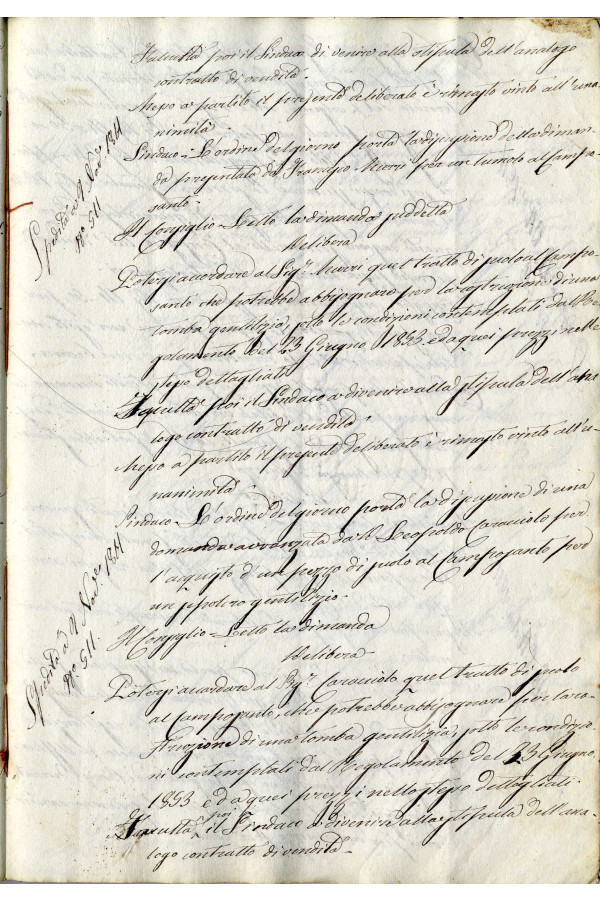 Facultà poi il Sindaco di venire alla stipula dell'analogo
contratto di vendita.
Messo a partito il presente deliberato è rimasto vinto all'una-
nimità.
Sindaco - L'ordine del giorno porta la discussione della diman-
da presentata da Murri per un tumolo al Campo-
santo.
Il Consiglio - Letto la dimanda suddetta
Delibera
Potersi accordare al Sig.r Murri quel tratto di suolo al Campo-
santo che potrebbe abbisognare per la costruzione di una
tomba gentilizia, sotto le condizioni contemplati dal Re-
golamento del 23 Giugno 1853 ed a quei prezzi nello
stesso dettagliati
Facultà poi il Sindaco a divenire alla stipula dell'ana-
logo contratto di vendita.
Messo a partito il presente deliberato è rimasto vinto all'u-
nanimità.
Sindaco - L'ordine del giorno porta la discussione di una
domanda avanzata da Leopoldo Caracciolo per
l'acquisto d'un pezzo di suolo al Camposanto per
un sepolcro gentilizio.
Il Consiglio - Letto la dimanda
Delibera
Potersi accordare al Sig.r Caracciolo quel tratto di suolo
al Camposanto, che potrebbe abbisognare per la co-
struzione di una tomba gentilizia, sotto le condizio-
ni contemplati dal Regolamento del 23 Giugno
1853 ed a quei prezzi nello stesso dettagliati.
Facultà poi il Sindaco a divenire alla stipula dell'ana-
logo contratto di vendita.
Spedita a 9
No. 511
Spedita a 9
No. 511.